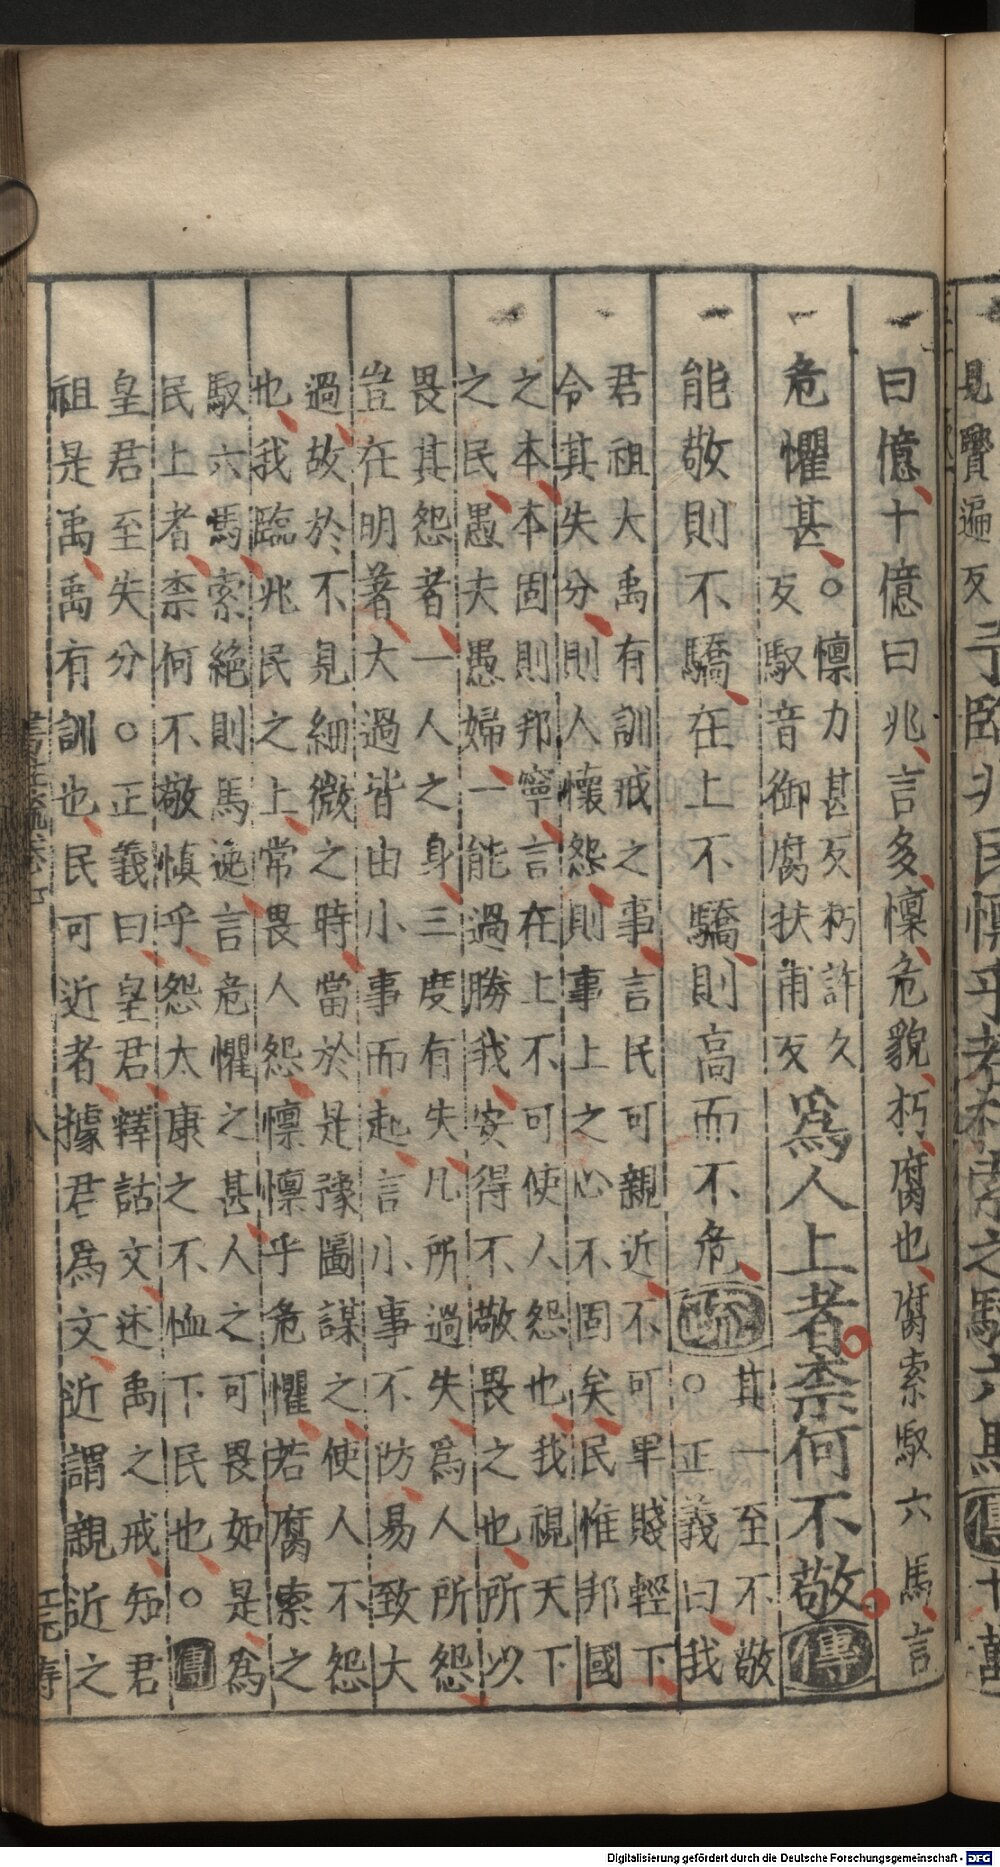 見賢遍反予臨兆民懍乎若朽索之馭六馬傳十萬
曰億十億曰兆言多懍危貌朽腐也腐索馭六馬言
危懼甚○懍力甚反朽許久
反馭音御腐扶甫反爲人上者柰何不敬傳
能敬則不驕在上不驕則高而不危疏其一至不敬
○正義曰我
君祖大禹有訓戒之事言民可親近不可卑賤輕下
令其失分則人懷怨則事上之心不固矣民惟邦國
之本本固則邦寧言在上不可使人怨也我視天下
之民愚夫愚婦一能過勝我安得不敬畏之也所以
畏其怨者一人之身三度有失凡所過失爲人所怨
豈在明著大過皆由小事而起言小事不防易致大
過故於不見細微之時當於是豫圖謀之使人不怨
也我臨兆民之上常畏人怨懍懍乎危懼若腐索之
馭六馬索絕則馬逸言危懼之甚人之可畏如是爲
民上者柰何不敬慎乎怨太康之不恤下民也○傳
皇君至失分○正義曰皇君釋詁文述禹之戒知君
祖是禹禹有訓也民可近者據君爲文近謂親近之
八
Digitalisierung gefördert durch die Deutsche Forschungsgemeinschaft - DFG